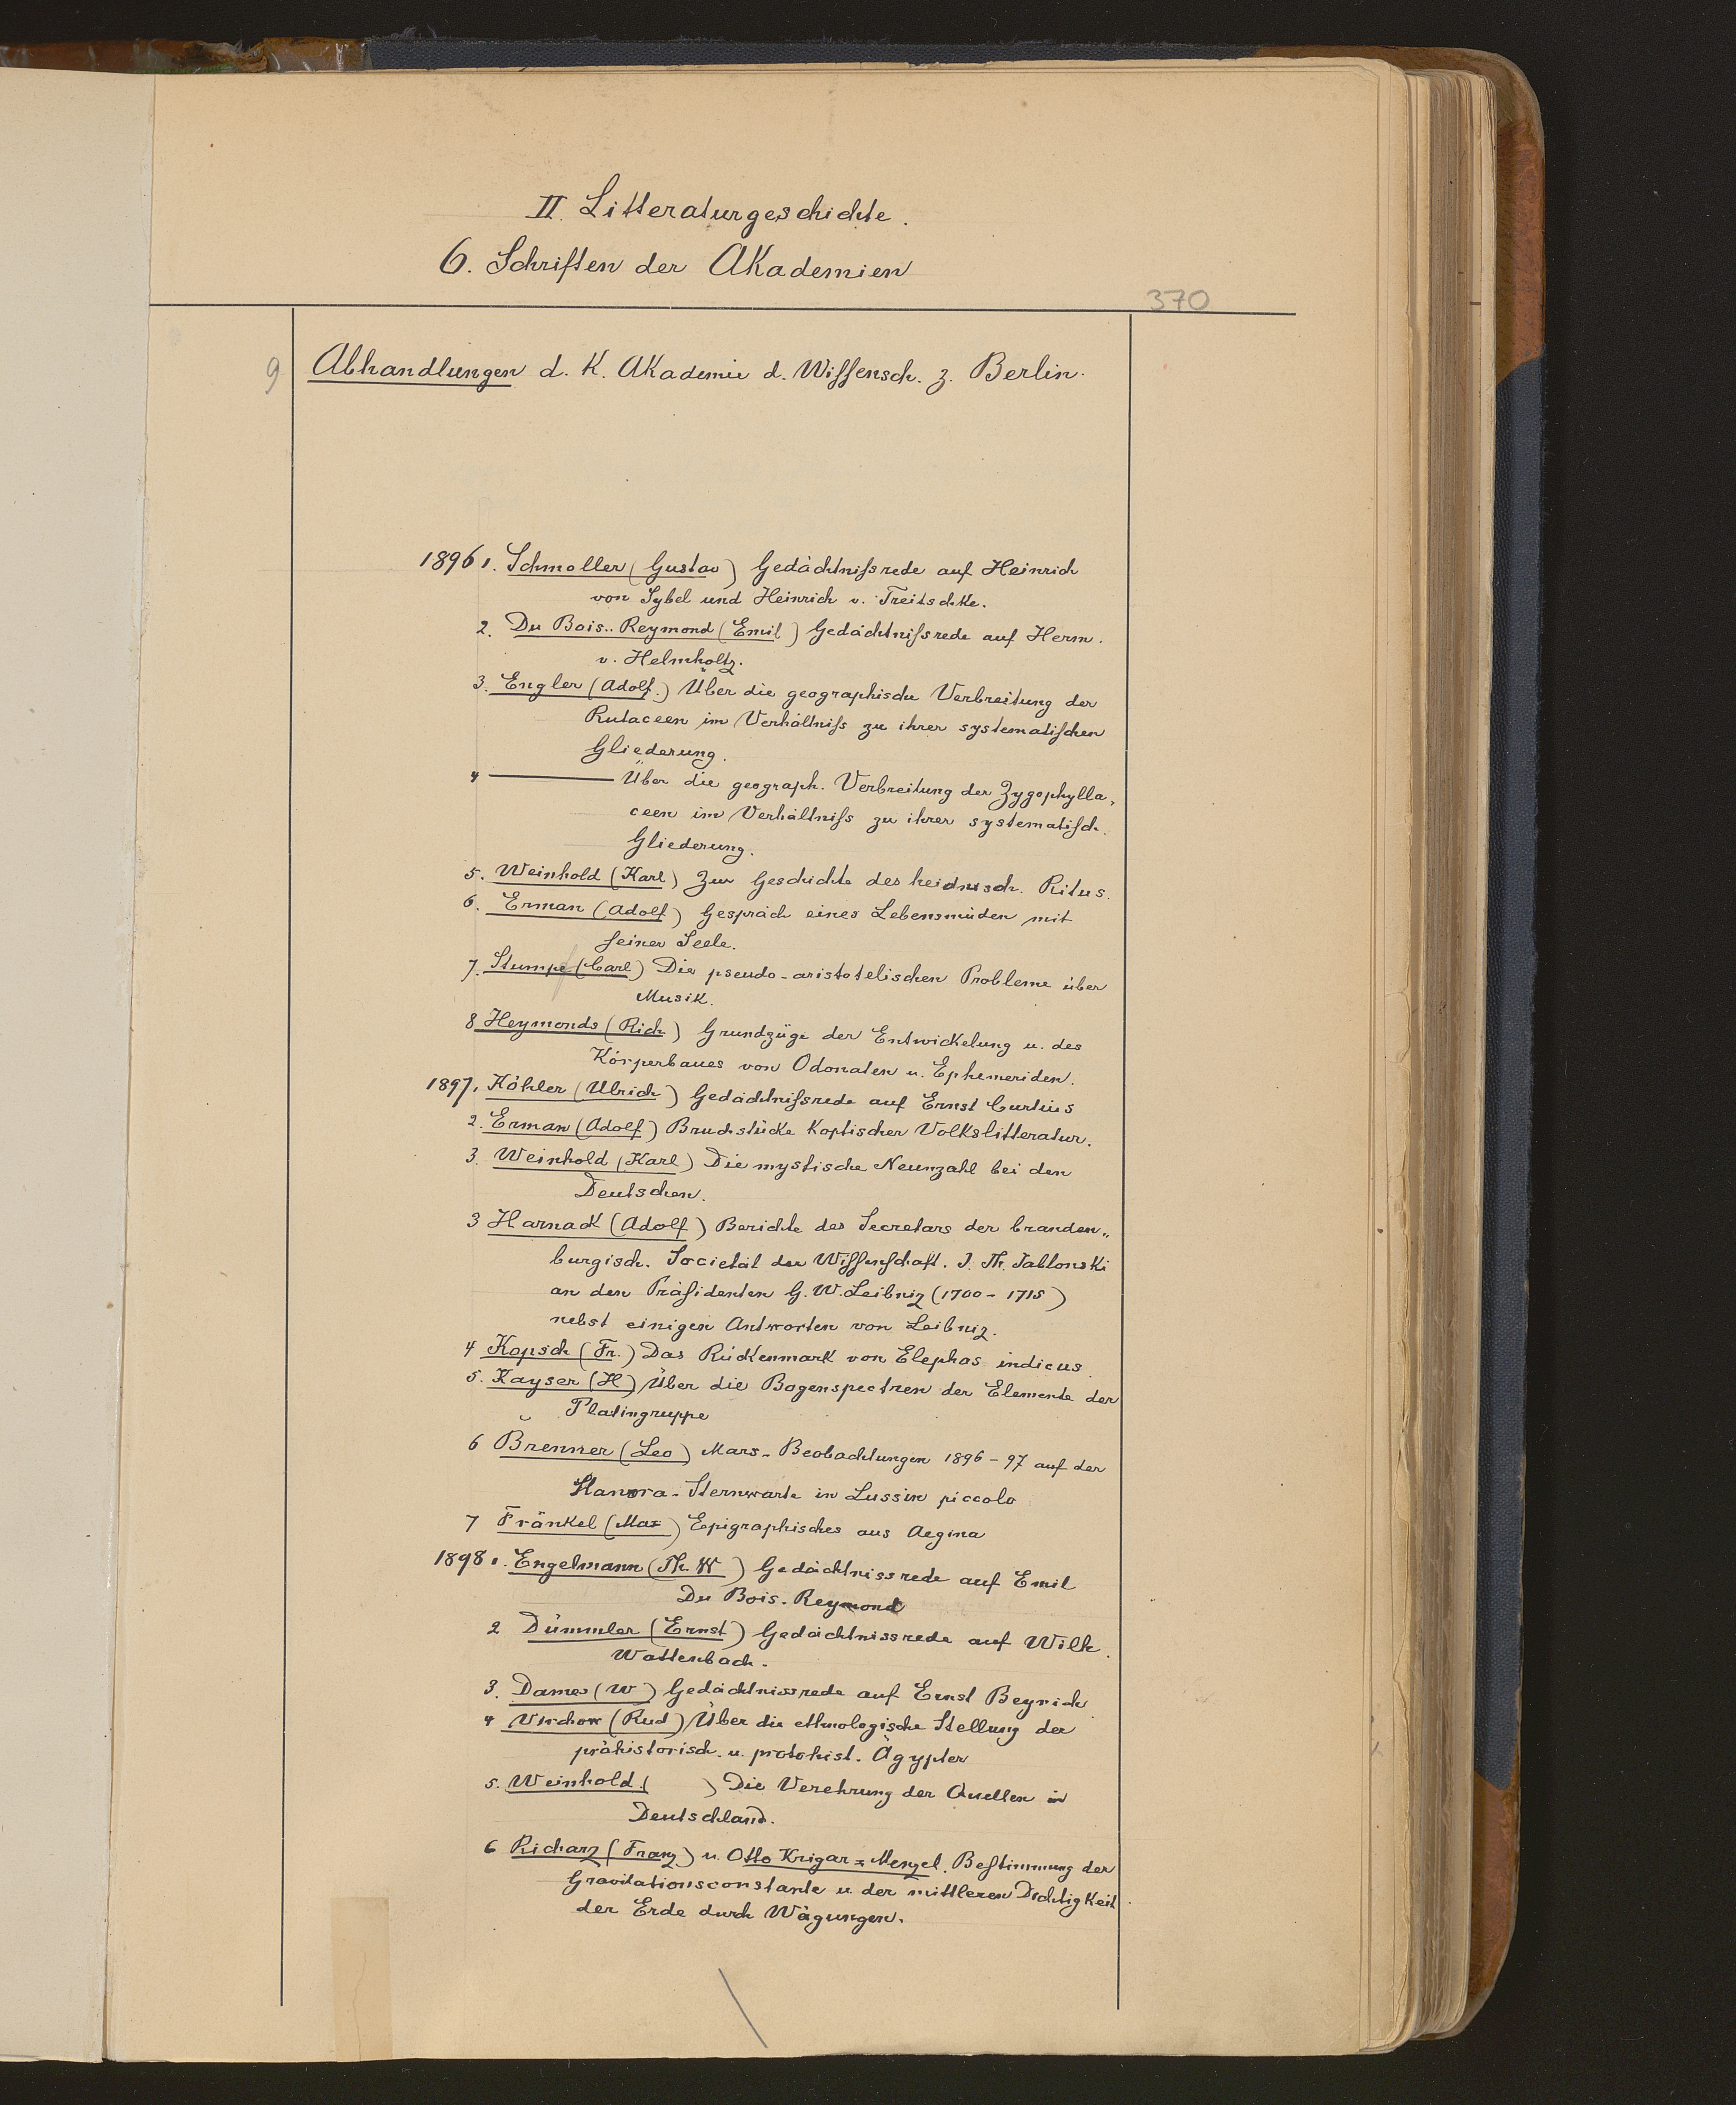 II. Litteraturgeschichte.
6. Schriften der Akademien
370
9 Abhandlungen d. K. Akademie d. Wissensch. z. Berlin.
1896 1. Schmoller (Gustav) Gedächtnißrede auf Heinrich
von Sybel und Heinrich v. Treitschke.
2. Du Bois-Reymond (Emil) Gedächtnißrede auf Herm.
v. Helmholtz.
3. Engler (Adolf.) Über die geographische Verbreitung der
Rutaceen im Verhältniß zu ihrer systematischen
Gliederung.
4 ——— Über die geograph. Verbreitung der Zygophylla-
ceen im Verhältniß zu ihrer systematisch.
Gliederung.
5. Weinhold (Karl) Zur Geschichte des heidnisch. Ritus.
6. Erman (Adolf) Gespräch eines Lebensmüden mit
seiner Seele.
7. Stumpf (Carl) Die pseudo-aristotelischen Probleme über
Musik.
8 Heymonds (Rich) Grundzüge der Entwickelung u. des
Körperbaues von Odonaten u. Ephemeriden.
1897. Köhler (Ulrich) Gedächtnißrede auf Ernst Curtius
2. Erman (Adolf) Bruchstücke Koptischer Volkslitteratur.
3. Weinhold (Karl) Die mystische Neunzahl bei den
Deutschen.
3 Harnack (Adolf) Berichte des Secretars der branden-
burgisch. Societät der Wissenschaft. J. Th. Jablonski
an den Präsidenten G. W. Leibniz (1700-1715)
nebst einigen Antworten von Leibniz.
4 Kopsch (Fr.) Das Rückenmark von Elephas indicus
5. Kayser (H) Über die Bogenspectren der Elemente der
Platingruppe
6 Brenner (Leo) Mars-Beobachtungen 1896-97 auf der
Manora-Sternwarte in Lussin piccolo
7 Fränkel (Max) Epigraphisches aus Aegina
1898 1. Engelmann (Th. W) Gedächtnissrede auf Emil
Du Bois-Reymond
2 Dümmler (Ernst) Gedächtnissrede auf Wilh.
Wattenbach.
3. Dames (W) Gedächtnissrede auf Ernst Beyrich
4 Virchow (Rud) Über die ethnologische Stellung der
prähistorisch. u. protohist. Ägypter
5. Weinhold ( ) Die Verehrung der Quellen in
Deutschland.
6 Richarz (Franz) u. Otto Krigar-Menzel. Bestimmung der
Gravitationsconstante u. der mittleren Dichtigkeit
der Erde durch Wägungen.